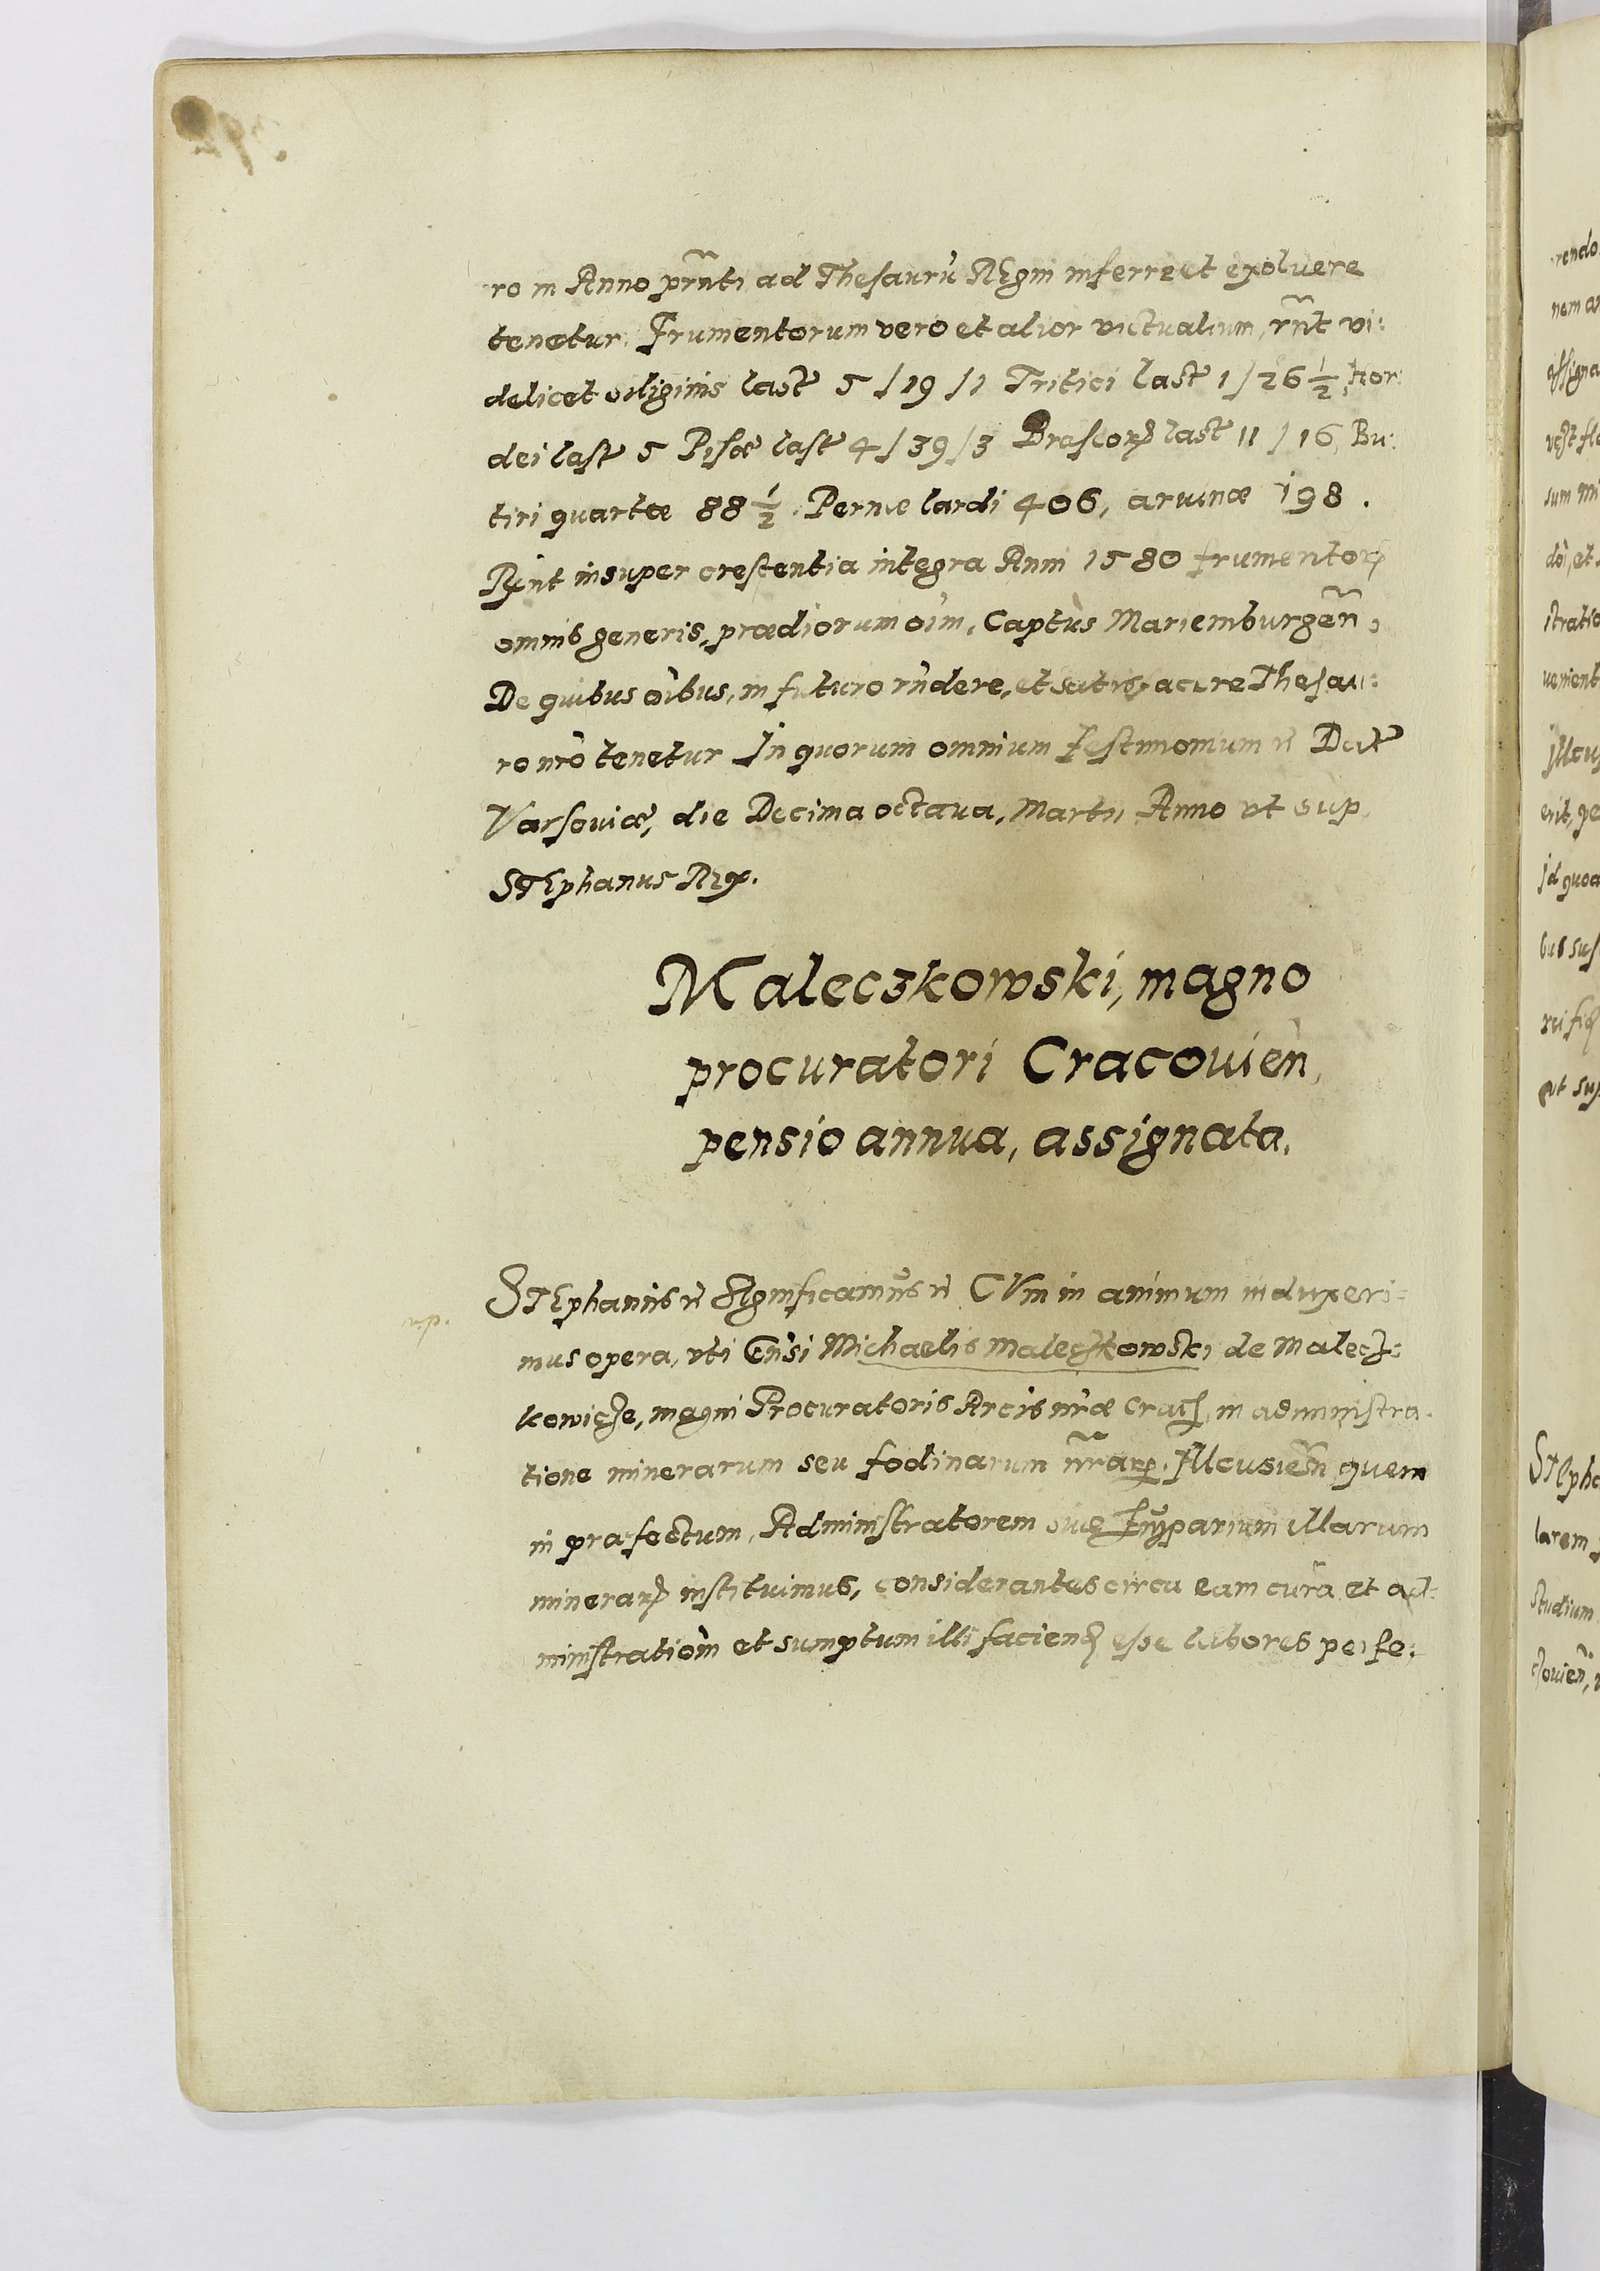 ro in Anno prñti ad Thesaurũ REgni inferre et exoluere
tenetur. Frumentorum vero et alior victualium, rñt vi:
delicet siliginis last 5 / 19 / 1 Tritici last 1 / 26 ½, Hor:
dei last 5 Pisæ last 4 / 39 / 3 Braseorꝝ last 11 / 16, Bu:
tiri quartæ 88 ½. Pernæ lardi 406, aruinæ 198.
Rx̃nt insuper crescentia integra Anni 1580 frumentorꝝ
omnis generis, prædiorum oĩm, Captus Mariemburgeñ,
De quibus oĩbus, in futuro rñdere, et satisfacere Thesau:
ro nrõ tenetur In quorum omnium testimonium &c Dat
Varsoviæ, die Decima octava, Martii, Anno ut sup.
STEphanus REx.
Maleczkowski, magno
procuratori Cracovień,
pensio annua, assignata.
STEphanus &c Significamus &c CVm in animum induxeri:
mus opera, vti Gñsi Michaelis Maleczkowski de Malecz:
kowicze, magni Procuratoris Arcis nræ Crac, in administra:
tione minerarum seu fodinarum nrarꝝ. Ilcusieñ quem
in præfectum, Administratorem siue Zupparium illarum
minerarꝝ instituimus, considerantes circa eam curã et ad:
ministratiom et sumptum illi faciend esse labores perfe: